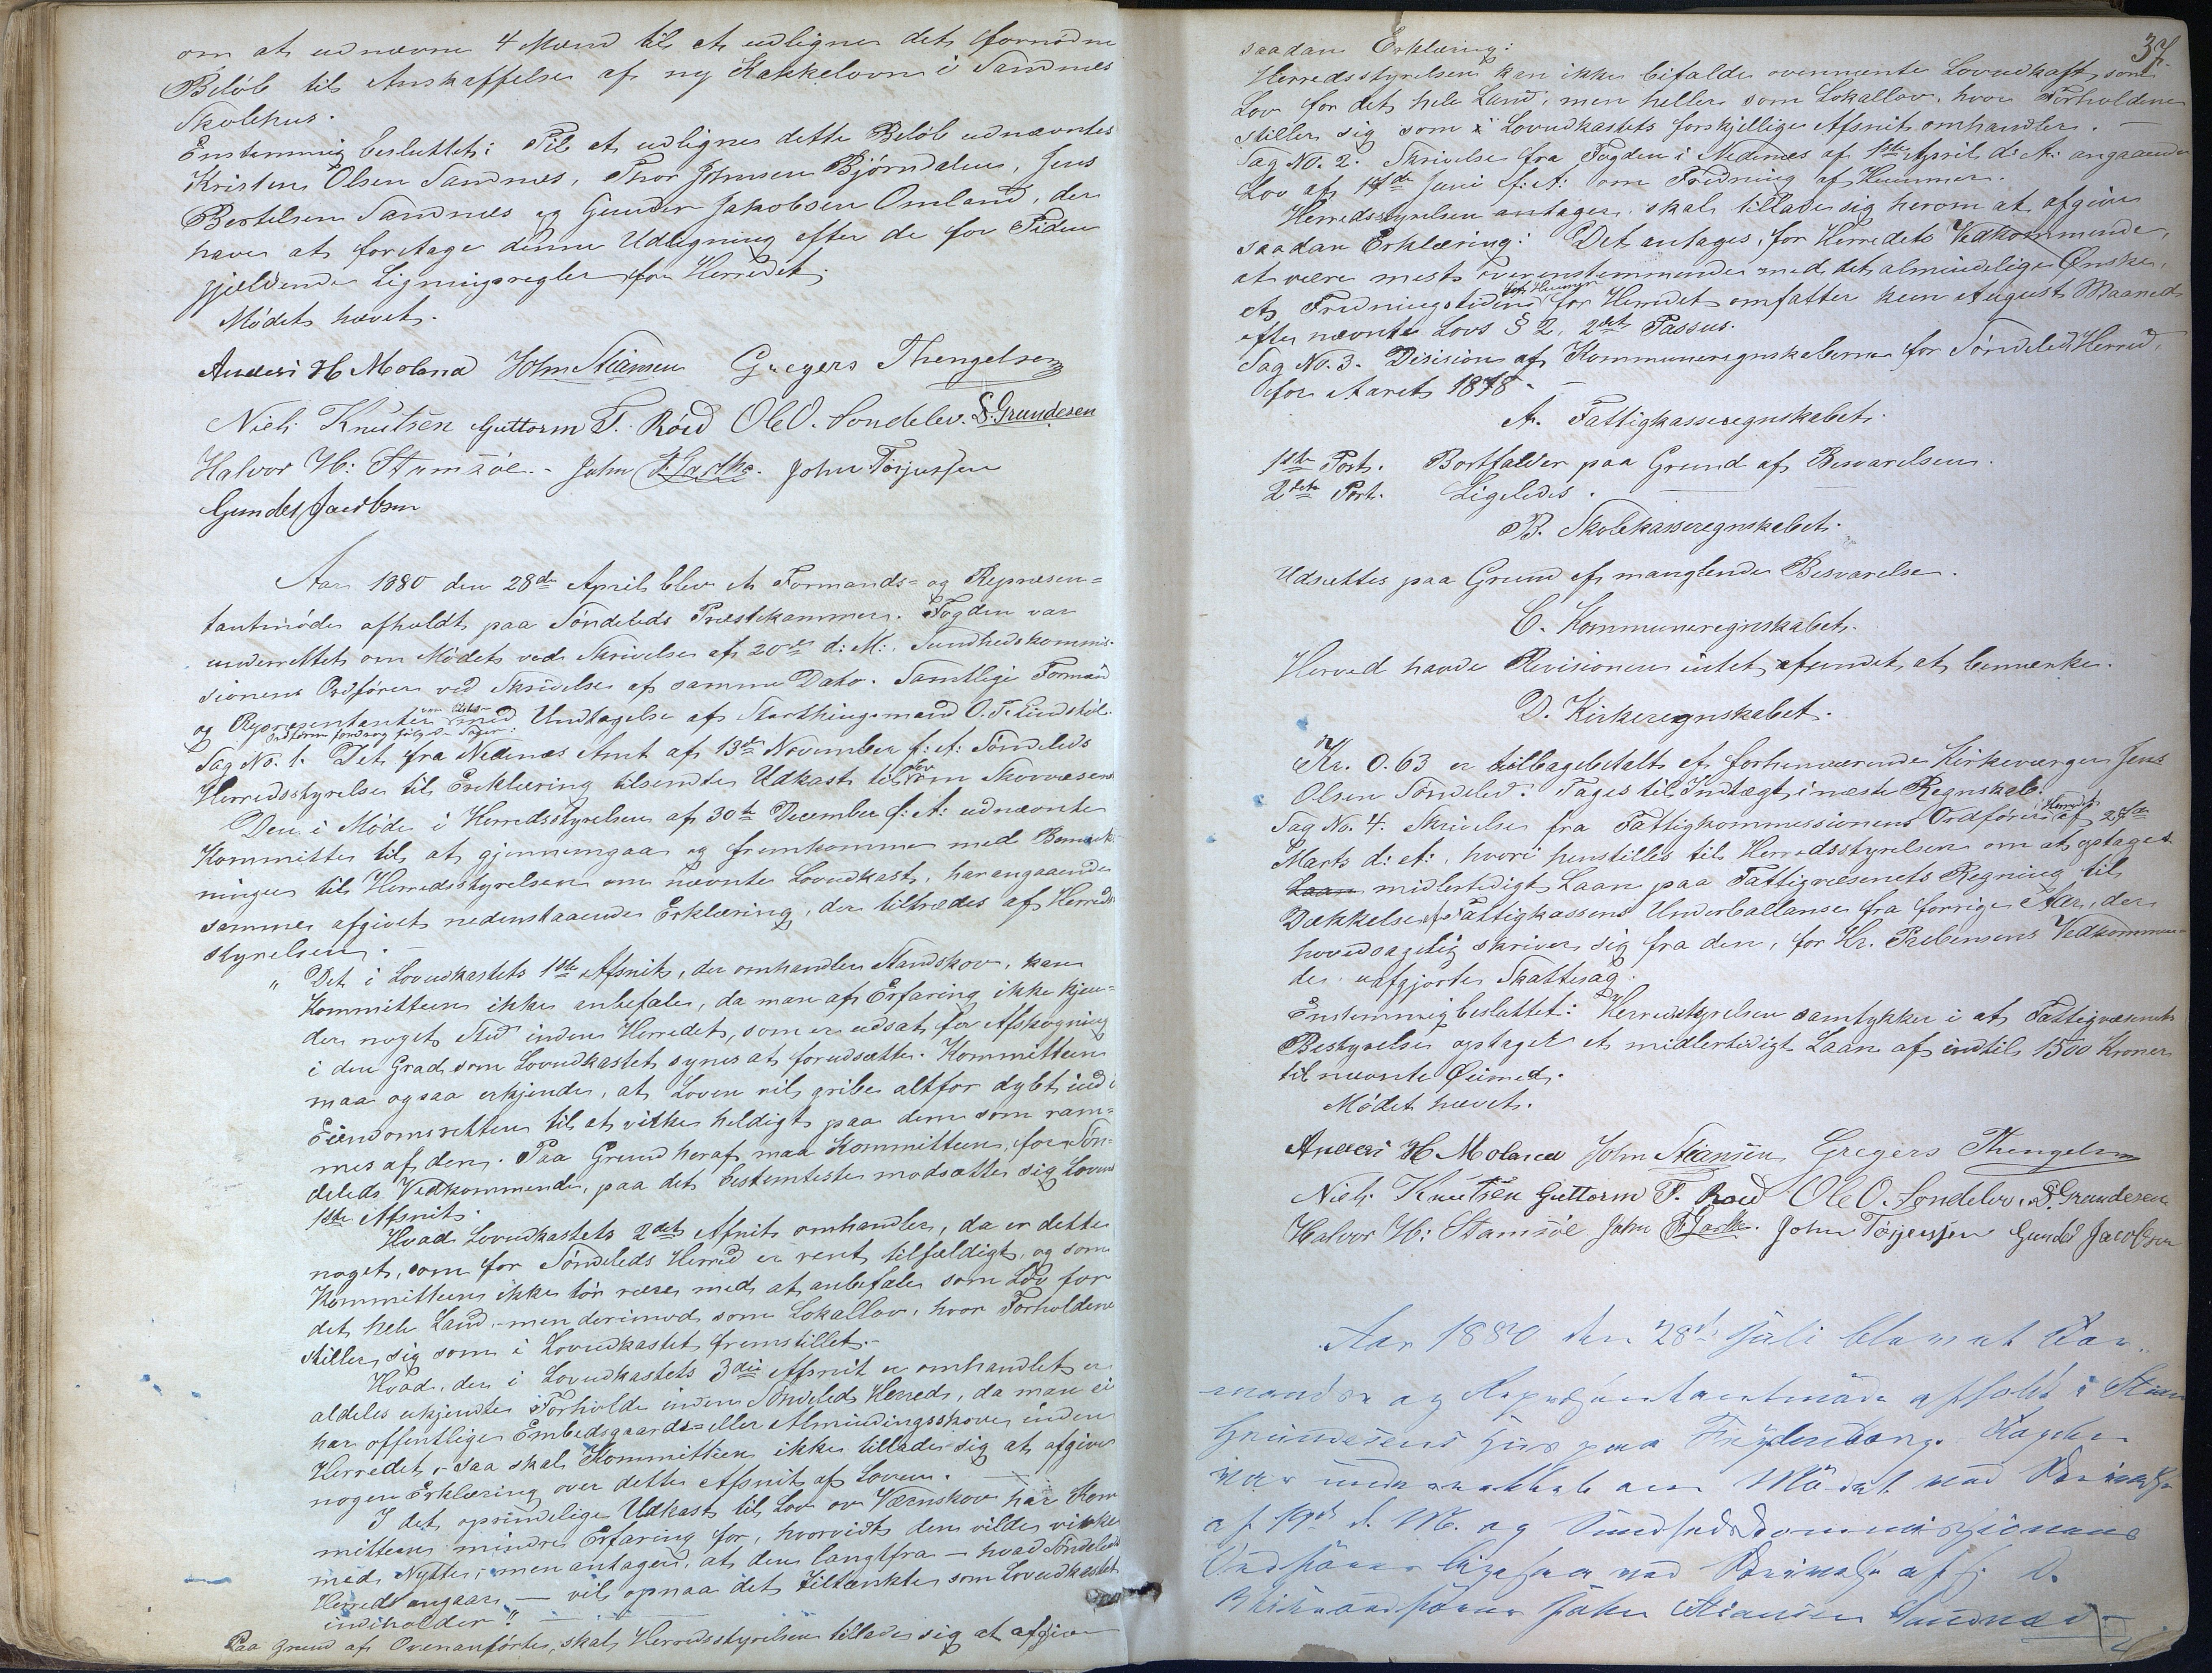 om at udnævne 4 Mænd til at udligne det fornødne
Beløb til Anskaffelse af ny Kakkelovn i Sandnes
Skolehus.
Enstemmig besluttet: Til at udligne dette Beløb udnævntes
Kristen Olsen Sandnes, Thor Johnsen Bjørndalen, Jens
Bertelsen Sandnes og Gunder Jakobsen Omland, der
haver at foretage denne Udligning efter de for Tiden
gjældende Ligningsregler for Herredet.
Mødet hævet.
Anders H Moland John Stiansen Gregers Thengelsen
Niels Knutsen Guttorm T. Røed Ole O. Sondelev. S. Grundesen
Halvor H: Stamsøe. John Tørjussen
Gunder Jacobsen
Aar 1880 den 28de April blev et Formands- og Repræsen-
tantmøde afholdt paa Søndeleds Præstekammer. Fogden var
underrettet om Mødet ved Skrivelse af 20de d: M:, Sundhedskommis-
sionens Ordfører ved Skrivelse af samme Dato. Samtlige Formænd
og Repræsentanter med Undtagelse af Storthingsmand O. T. Lindstøl.
Ordføreren foredrog følgende Sager:
Sag No. 1. Det fra Nedenæs Amt af 13de November f: A: Søndeleds
Herredsstyrelse til Erklæring tilsendte Udkast til Lov om Skovvæsen
Den i Møde i Herredsstyrelsen af 30te December f: A: udnævnte
Kommitte til at gjennemgaa og fremkomme med Bemærk-
ninger til Herredsstyrelsen om nævnte Lovudkast, har angaaende
samme afgivet nedenstaaende Erklæring, der tiltrædes af Herreds-
styrelsen.
" Det i Lovudkastets 1ste Afsnit, der omhandler Standskov, kan
Kommitteen ikke anbefale, da man af Erfaring ikke kjen-
der noget Sted inden Herredet, som er udsat for Afskogning
i den Grad som Lovudkastet synes at forudsætte. Kommitteen
maa ogsaa erkjende, at Loven vil gribe altfor dybt ind i
Eiendomsretten til at virke heldigt paa dem som ram-
mes af den. Paa Grund heraf maa Kommitteen, for Søn-
deleds Vedkommende, paa det bestemteste modsætte sig Lovens
1ste Afsnit.
Hvad Lovudkastets 2det Afsnit omhandler, da er dette
noget, som for Søndeleds Herred er rent tilfældigt, og som
Kommitteen ikke tør være med at anbefale som Lov for
det hele Land, men derimod som Lokallov, hvor Forholdene
stiller sig som i Lovudkastet fremstillet.-
Hvad, der i Lovudkastets 3die Afsnit er omhandlet er
aldeles ukjendte Forholde inden Søndeleds Herred, da man ei
har offentlige Embedsgaards- eller Almindingsskove inden
Herredet, - saa skal Kommitteen ikke tillade sig at afgive
nogen Erklæring over dette Afsnit af Loven.
I det oprindelige Udkast til Lov om Værnskov har Kom
mitteen mindre Erfaring for, hvorvidt den vilde virke
med Nytte; men antager, at den langtfra - hvad Søndeleds
Herred angaar, - vil opnaa det tiltænkte som Lovudkastet
indeholder."
Paa Grund af Ovenanførte, skal Herredsstyrelsen tillade sig at afgive
37.
saadan Erklæring:
Herredsstyrelsen kan ikke bifalde ovennævnte Lovudkast, som
Lov for det hele Land, men heller som Lokallov, hvor Forholdene
stiller sig som i Lovudkastets forskjellige Afsnit omhandler.
Sag No. 2. Skrivelse fra Fogden i Nedenæs af 1ste April d: A: angaaende
Lov af 14de Juni f: A: om Fredning af Hummer.
Herredsstyrelsen antager, skal tillade sig herom at afgive
saadan Erklæring: Det antages, for Herredets Vedkommende,
at være mest overenstemmende med det almindelige Ønske,
at Fredningstiden for Hummer for Herredet omfatter kun August Maaned
efter nævnte Lovs § 2, 2det Passus.
Sag No. 3. Desision af Kommuneregnskaberne for Søndeled Herred,
for Aaret 1878.
A. Fattigkasseregnskabet.
1ste Post. Bortfalder paa Grund af Besvarelsen.
2den Post. Ligeledes.
B. Skolekasseregnskabet.
Udsættes paa Grund af manglende Besvarelse.
C. Kommuneregnskabet.
Herved havde Revisionen intet fundet at bemærke.
D. Kirkeregnskabet.
Kr. 0.63 er tilbagebetalt af forhenværende Kirkeværge Jens
Olsen Søndeled. Tages til Indtægt i næste Regnskab.
Sag No. 4. Skrivelse fra Fattigkommissionens Ordfører i Herredet af 27de
Marts d: A:, hvori henstilles til Herredsstyrelsen om at optages
Laan midlertidigt Laan paa Fattigvæsenets Regning til
Dækkelse af Fattigkassens Underballanse fra forrige Aar, der
hovedsagelig skriver sig fra den, for Hr. Prebensens Vedkommen-
de, uafgjorte Skattesag.
Enstemmig besluttet: Herredsstyrelsen samtykker i at Fattigvæsenets
Bestyrelse optager et midlertidigt Laan af indtil 1500 Kroner
til nævnte Øiemed.
Mødet hævet.
Anders H Moland John Stiansen Gregers Thengelsen
Niels Knutsen Guttorm T. Røed Ole O. Sondelev. S. Grundesen
Halvor H: Stamsøe John Tørjussen Gunder Jacobsen
Aar 1880 den 28de Juli blev et For-
mands og Repræsentantmøde afholdt i Stian
Grundesens Hus paa Fogden
var underrettet om Mødet ved Skrivelse
af d. M. og Sundhedskommissionens
Ordfører ligesaa ved Skrivelse af s. D.
Viceordfører John Stiansen Sandnes